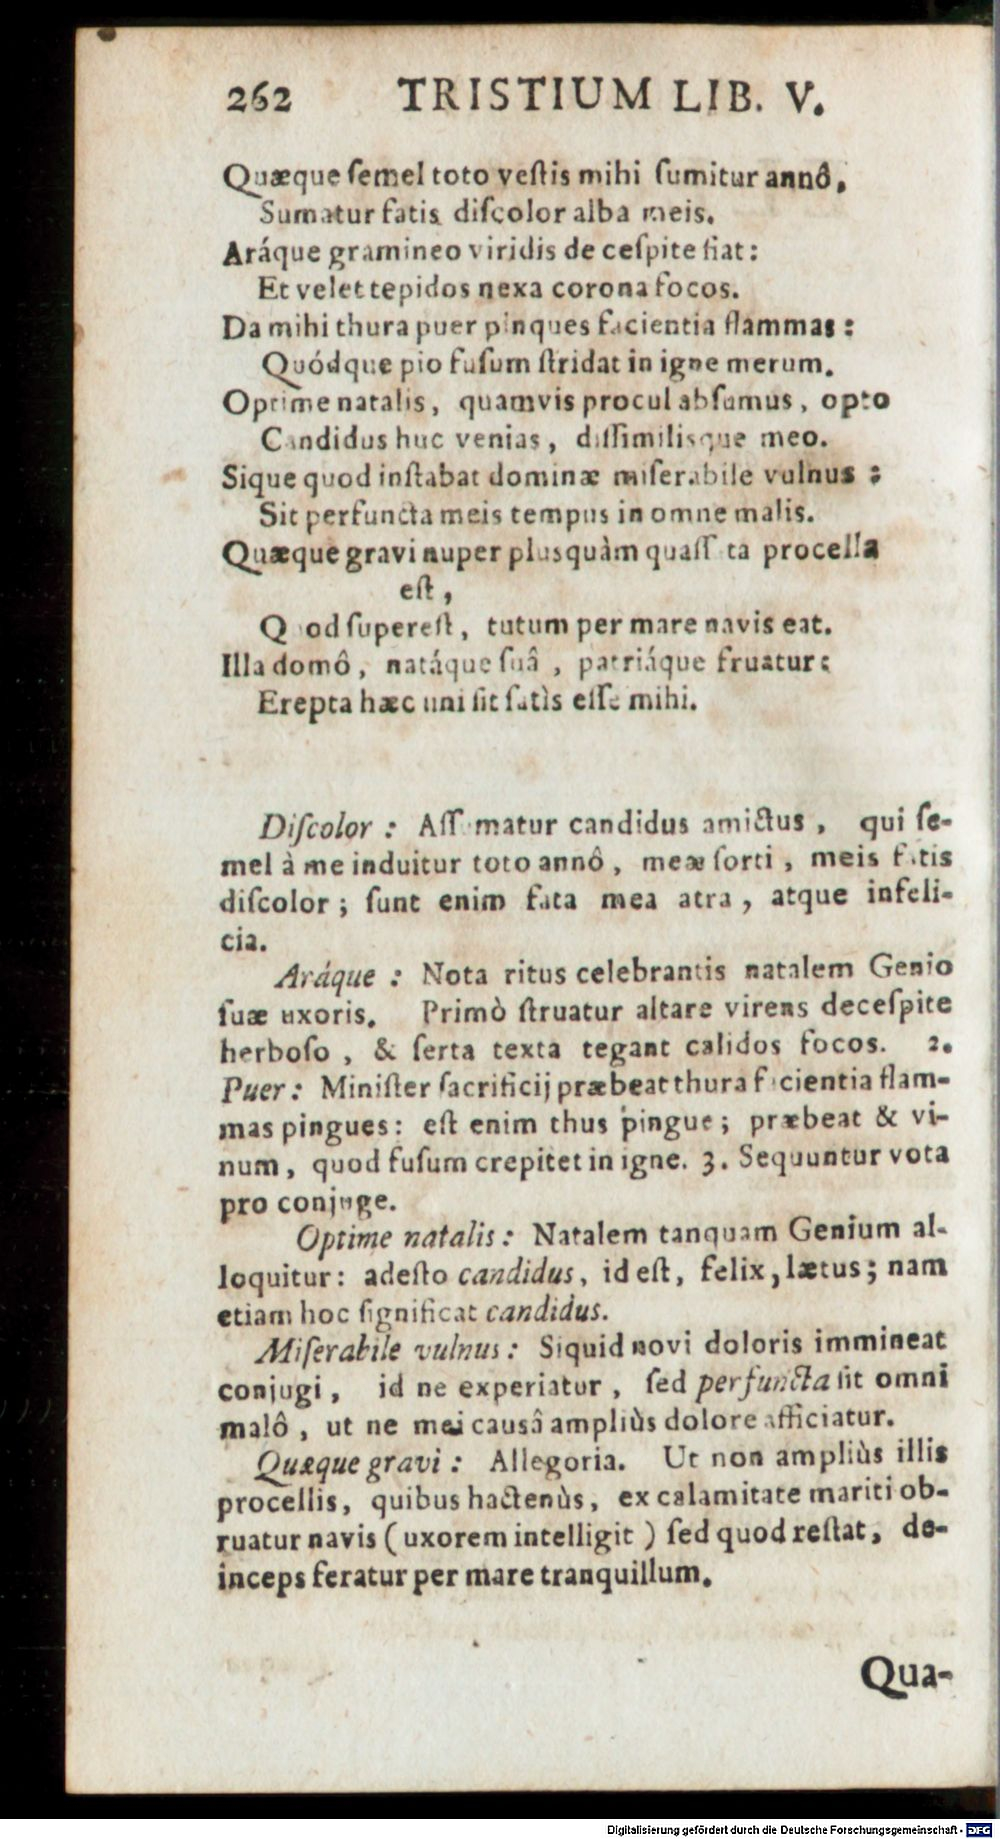 262 TRISTIUM LIB. V.
Quæque ſemel toto veſtis mihi ſumitur annô,
Sumatur fatis diſcolor alba meis.
Aráque gramineo viridis de ceſpite fiat:
Et velet tepidos nexa corona focos.
Da mihi thura puer pinques facientia flammas:
Quódque pio fuſum ſtridat in igne merum.
Optime natalis, quamvis procul abſumus, opto
Candidus huc venias, diſſimilisque meo.
Sique quod inſtabat dominæ miſerabile vulnus:
Sit perfuncta meis tempus in omne malis.
Quæque gravi nuper plusquàm quaſſata procella
eſt,
Quod ſupereſt, tutum per mare navis eat.
Illa domô, natáque ſuâ, patriáque fruatur:
Erepta hæc uni ſit ſatìs eſſe mihi.
Diſcolor: Aſſumatur candidus amictus, qui ſe-
mel à me induitur toto annô, meæ ſorti, meis fatis
diſcolor; ſunt enim fata mea atra, atque infeli-
cia.
Aráque: Nota ritus celebrantis natalem Genio
ſuæ uxoris. Primò ſtruatur altare virens deceſpite
herboſo, & ſerta texta tegant calidos focos. 2.
Puer: Miniſter ſacrificij præbeat thura facientia flam-
mas pingues: eſt enim thus pingue; præbeat & vi-
num, quod fuſum crepitet in igne. 3. Sequuntur vota
pro conjuge.
Optime natalis: Natalem tanquam Genium al-
loquitur: adeſto candidus, id eſt, felix, lætus; nam
etiam hoc ſignificat candidus.
Miſerabile vulnus: Siquid novi doloris immineat
conjugi, id ne experiatur, ſed perfuncta ſit omni
malô, ut ne mei causâ ampliùs dolore afficiatur.
Quæque gravi: Allegoria. Ut non ampliùs illis
procellis, quibus hactenùs, ex calamitate mariti ob-
ruatur navis (uxorem intelligit) ſed quod reſtat, de-
inceps feratur per mare tranquillum.
Qua-
Digitalisierung gefördert durch die Deutsche Forschungsgemeinschaft - DFG